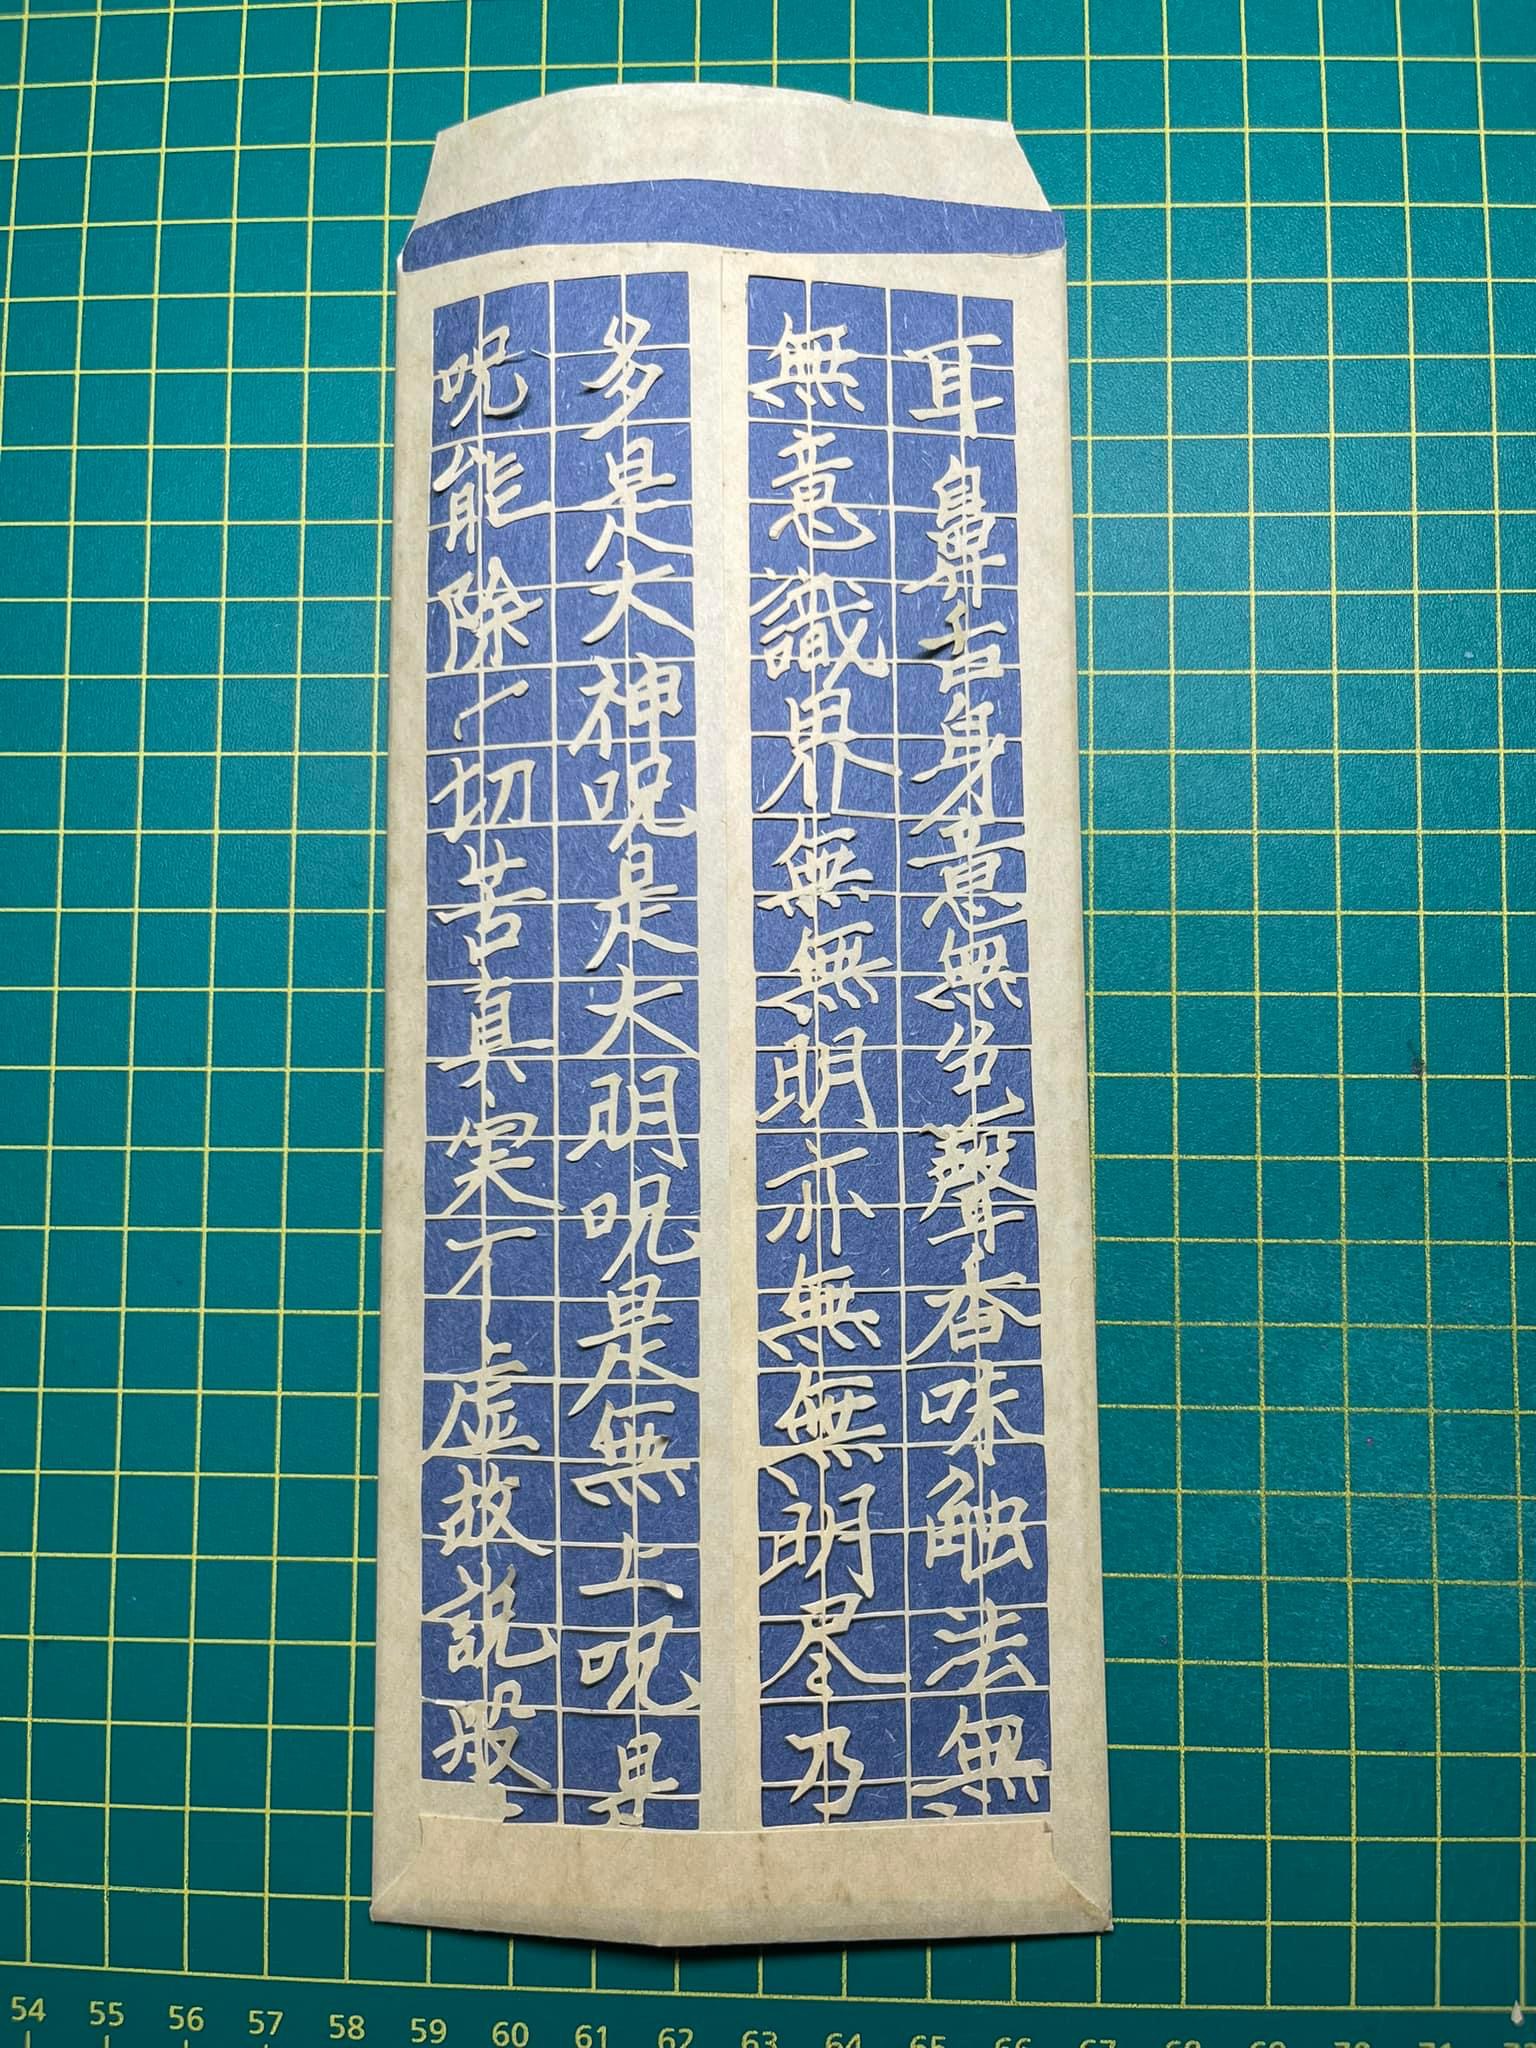 耳鼻舌身意無色聲香味触法無
無意識界無無明亦無無明尽乃
多是大神呪是大明呪是無上呪是
呪能除一切苦真実不虚故説般
54 55 56 57 58 59 60 61 62 63 64 65 66 67 68 69 70 71